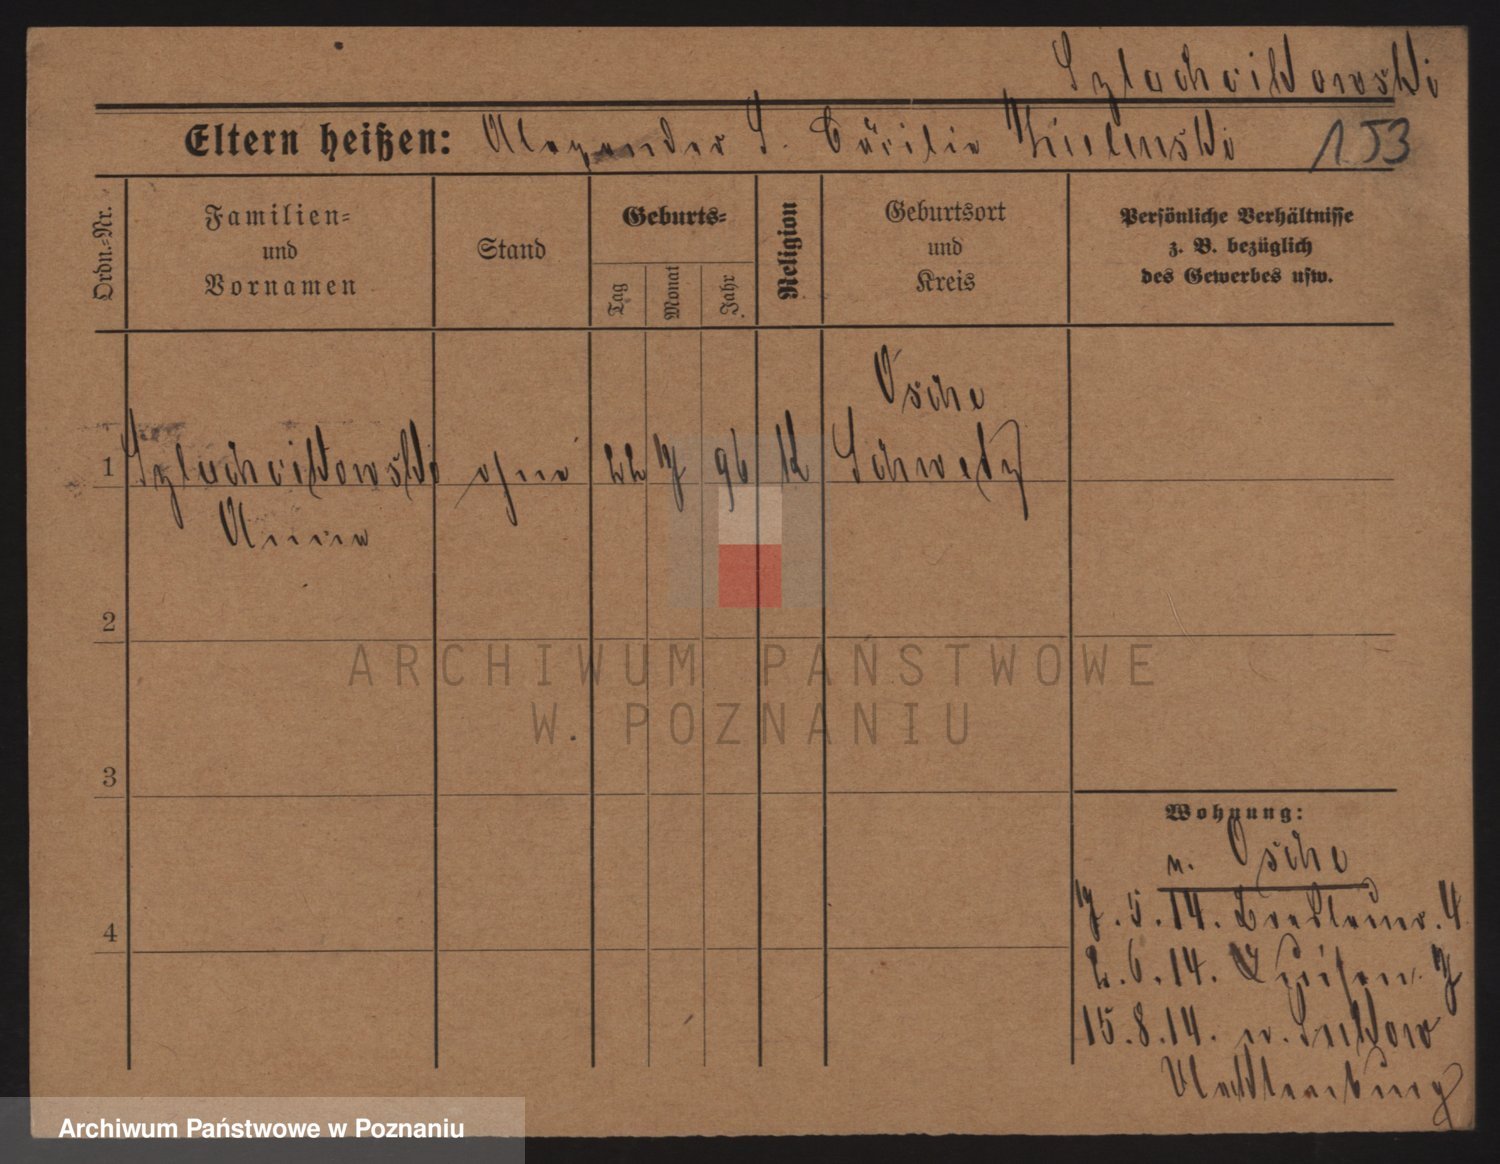 Szlachcikowski
Eltern heißen: Alexander S. Cäcilie Zielinski 153
Ordn.-Nr.
Familien-
und
Vornamen
Stand
Geburts-
Tag
Monat
Jahr
Religion
Geburtsort
und
Kreis
Persönliche Verhältnisse
z. B. bezüglich
des Gewerbes usw.
Osche
1 Szlachcikowski ohne 22 7 96 K Schwetz
Anna
2
ARCHIWUM PAŃSTWOWE
W. POZNANIU
3
Wohnung:
n. Osche
7.5.14. Breslauer. 4
4
2.6.14. Luisen. 7
15.8.14. n.
Mecklenburg
Archiwum Państwowe w Poznaniu